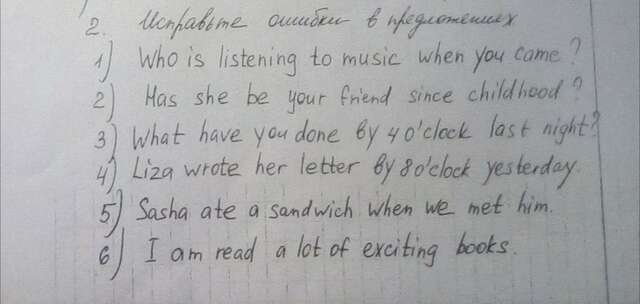 2. Исправьте ошибки в предложениях
1) Who is listening to music when you came?
2) Has she be your friend since childhood?
3) What have you done by 4 o'clock last night?
4) Liza wrote her letter by 8 o'clock yesterday.
5) Sasha ate a sandwich when we met him.
6) I am read a lot of exciting books.